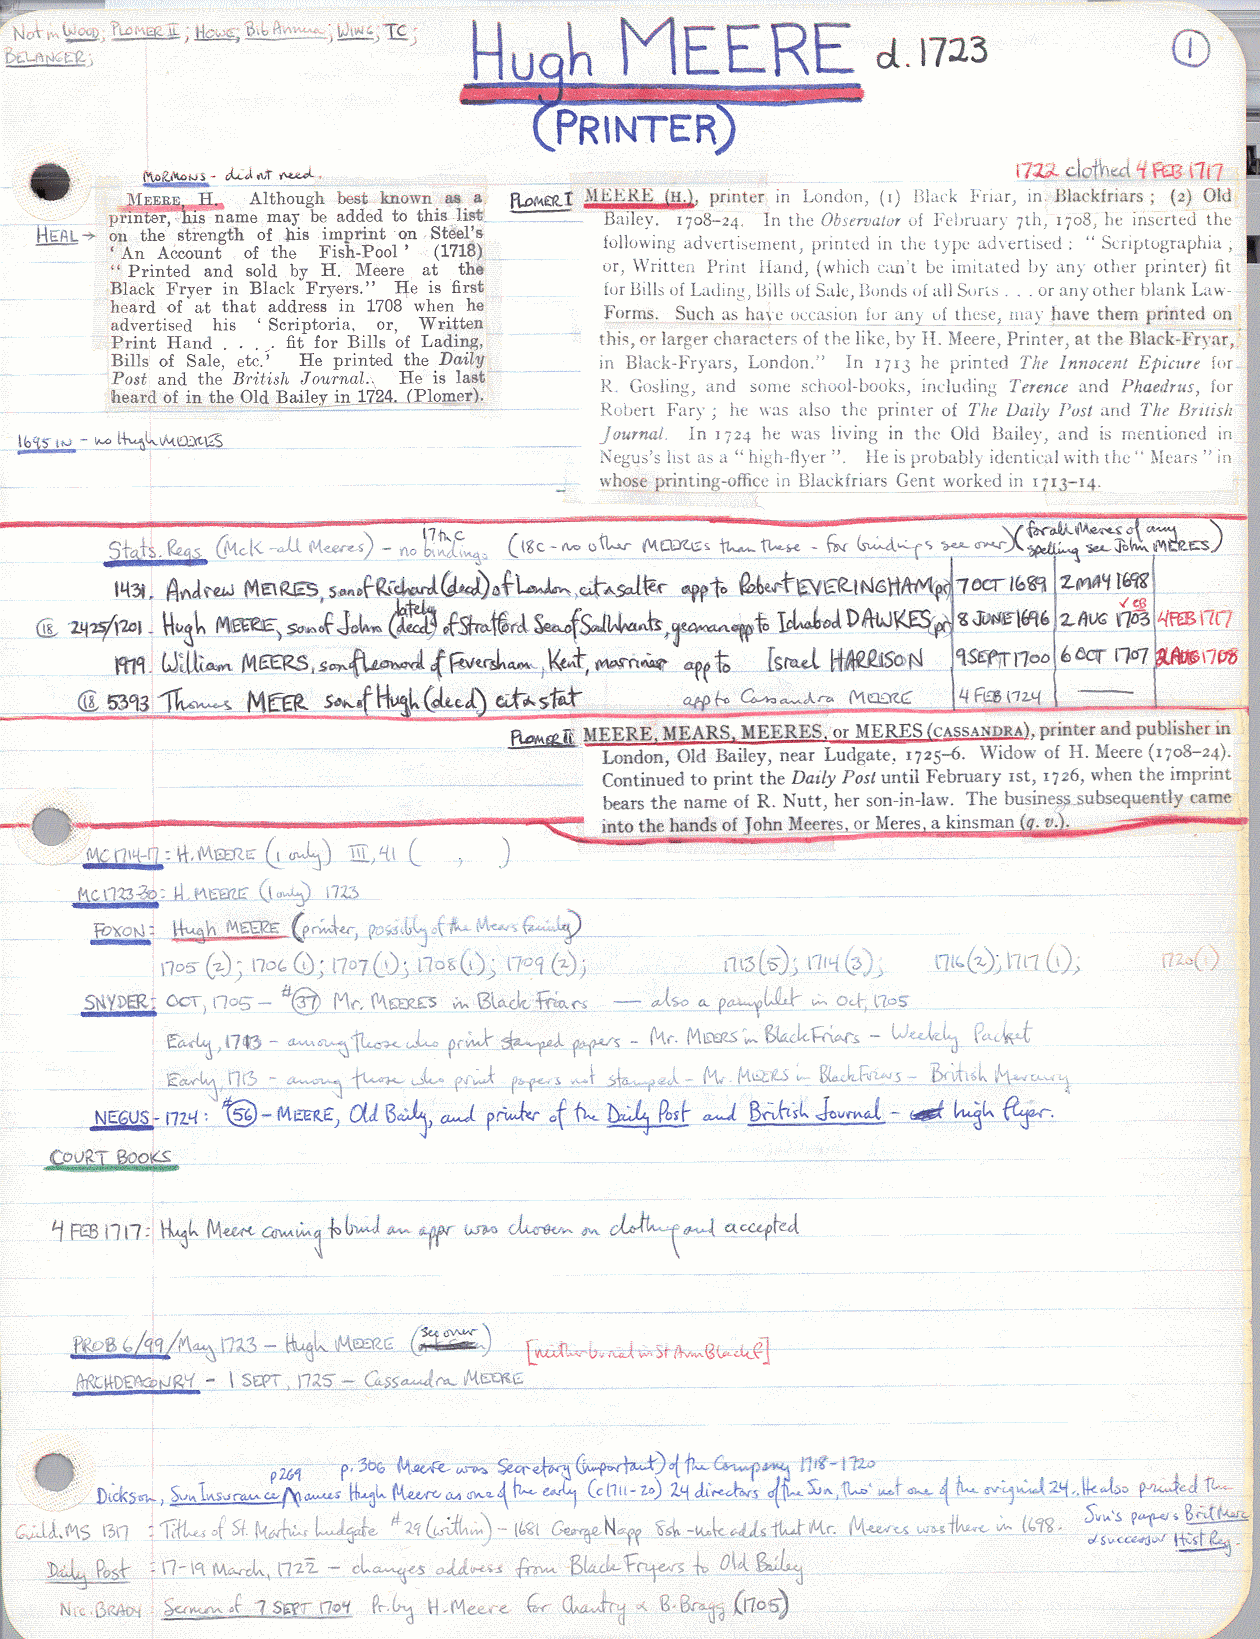 Not in WOOD; PLOMER II; HOWE; Bib Annua; WING; TC;
BELANGER;
Hugh MEERE d. 1723
1
(PRINTER)
1722 clothed 4 FEB 1717
MORMONS - didnt need.
HEAL →
MEERE, H. Although best known as a
printer, his name may be added to this list
on the strength of his imprint on Steel's
' An Account of the Fish-Pool ' (1718)
" Printed and sold by H. Meere at the
Black Fryer in Black Fryers." He is first
heard of at that address in 1708 when he
advertised his ' Scriptoria, or, Written
Print Hand . . . . fit for Bills of Lading,
Bills of Sale, etc.' He printed the Daily
Post and the British Journal. He is last
heard of in the Old Bailey in 1724. (Plomer).
1695 IN - no Hugh MEERES
PLOMER I
MEERE (H.), printer in London, (1) Black Friar, in Blackfriars ; (2) Old
Bailey. 1708-24. In the Observator of February 7th, 1708, he inserted the
following advertisement, printed in the type advertised : " Scriptographia,
or, Written Print Hand, (which can't be imitated by any other printer) fit
for Bills of Lading, Bills of Sale, Bonds of all Sorts . . . or any other blank Law-
Forms. Such as have occasion for any of these, may have them printed on
this, or larger characters of the like, by H. Meere, Printer, at the Black-Fryar,
in Black-Fryars, London." In 1713 he printed The Innocent Epicure for
R. Gosling, and some school-books, including Terence and Phaedrus, for
Robert Fary ; he was also the printer of The Daily Post and The British
Journal. In 1724 he was living in the Old Bailey, and is mentioned in
Negus's list as a " high-flyer ". He is probably identical with the " Mears " in
whose printing-office in Blackfriars Gent worked in 1713-14.
Stats. Regs (McK - all Meeres) - no 17th c bindings (18c - no other MEERES than these - for bindings see over) (for all Meres of any spelling see John MERES)
1431. Andrew MEIRES, son of Richard (decd) of London, cit & salter app to Robert EVERINGHAM pr 7 OCT 1689 2 MAY 1698
18 2425/1201 - Hugh MEERE, son of John (lately decd) of Stratford Sea of Salhhants, yeoman app to Ichabod DAWKES, pr 8 JUNE 1696 2 AUG 1703 ✓ CB 4 FEB 1717
1979. William MEERS, son of Leonard of Feversham, Kent, marriner app to Israel HARRISON 9 SEPT 1700 6 OCT 1707 2 AUG 1708
18 5393 Thomas MEER son of Hugh (decd) cit & stat app to Cassandra MEERE 4 FEB 1724 —
PLOMER II
MEERE, MEARS, MEERES, or MERES (CASSANDRA), printer and publisher in
London, Old Bailey, near Ludgate, 1725-6. Widow of H. Meere (1708-24).
Continued to print the Daily Post until February 1st, 1726, when the imprint
bears the name of R. Nutt, her son-in-law. The business subsequently came
into the hands of John Meeres, or Meres, a kinsman (q. v.).
MC 1714-17 : H. MEERE (1 only) III, 41 ( , )
MC 1723-30 : H. MEERE (1 only) 1723
FOXON : Hugh MEERE (printer, possibly of the Mears family)
1705 (2); 1706 (1); 1707 (1); 1708 (1); 1709 (2); 1713 (5); 1714 (3); 1716 (2); 1717 (1); 1720 (1)
SNYDER : OCT, 1705 - #37 Mr. MEERES in Black Friars — also a pamphlet in Oct, 1705
Early, 1713 - among those who print stamped papers - Mr. MEERS in Black Friars - Weekly Packet
Early, 1713 - among those who print papers not stamped - Mr. MEERS in Black Friars - British Mercury
NEGUS - 1724 : #56 - MEERE, Old Baily, and printer of the Daily Post and British Journal - high flyer.
COURT BOOKS
4 FEB 1717 : Hugh Meere coming to bind an appr was chosen on clothing and accepted
PROB 6/99/May 1723 - Hugh MEERE (see over) [neither buried in St Ann Blackf]
ARCHDEACONRY - 1 SEPT, 1725 - Cassandra MEERE
p 269 p. 306 Meere was Secretary (important) of the Company 1718-1720
Dickson, Sun Insurance names Hugh Meere as one of the early (c1711-20) 24 directors of the Sun, tho' not one of the original 24. He also printed the
Sun's papers Brit Merc
& successor Hist Reg.
Guild. MS 1317 : Tithes of St. Martins Ludgate #29 (within) - 1681 George Napp 85h - note adds that Mr. Meeres was there in 1698.
Daily Post : 17-19 March, 1722 - changes address from Black Fryers to Old Bailey
Nic. BRADY : Sermon of 7 SEPT 1704 Pr. by H. Meere for Chantry & B. Bragg (1705)